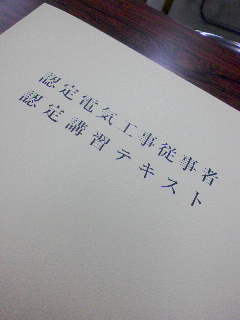 認定電気工事従事者
認定講習テキスト